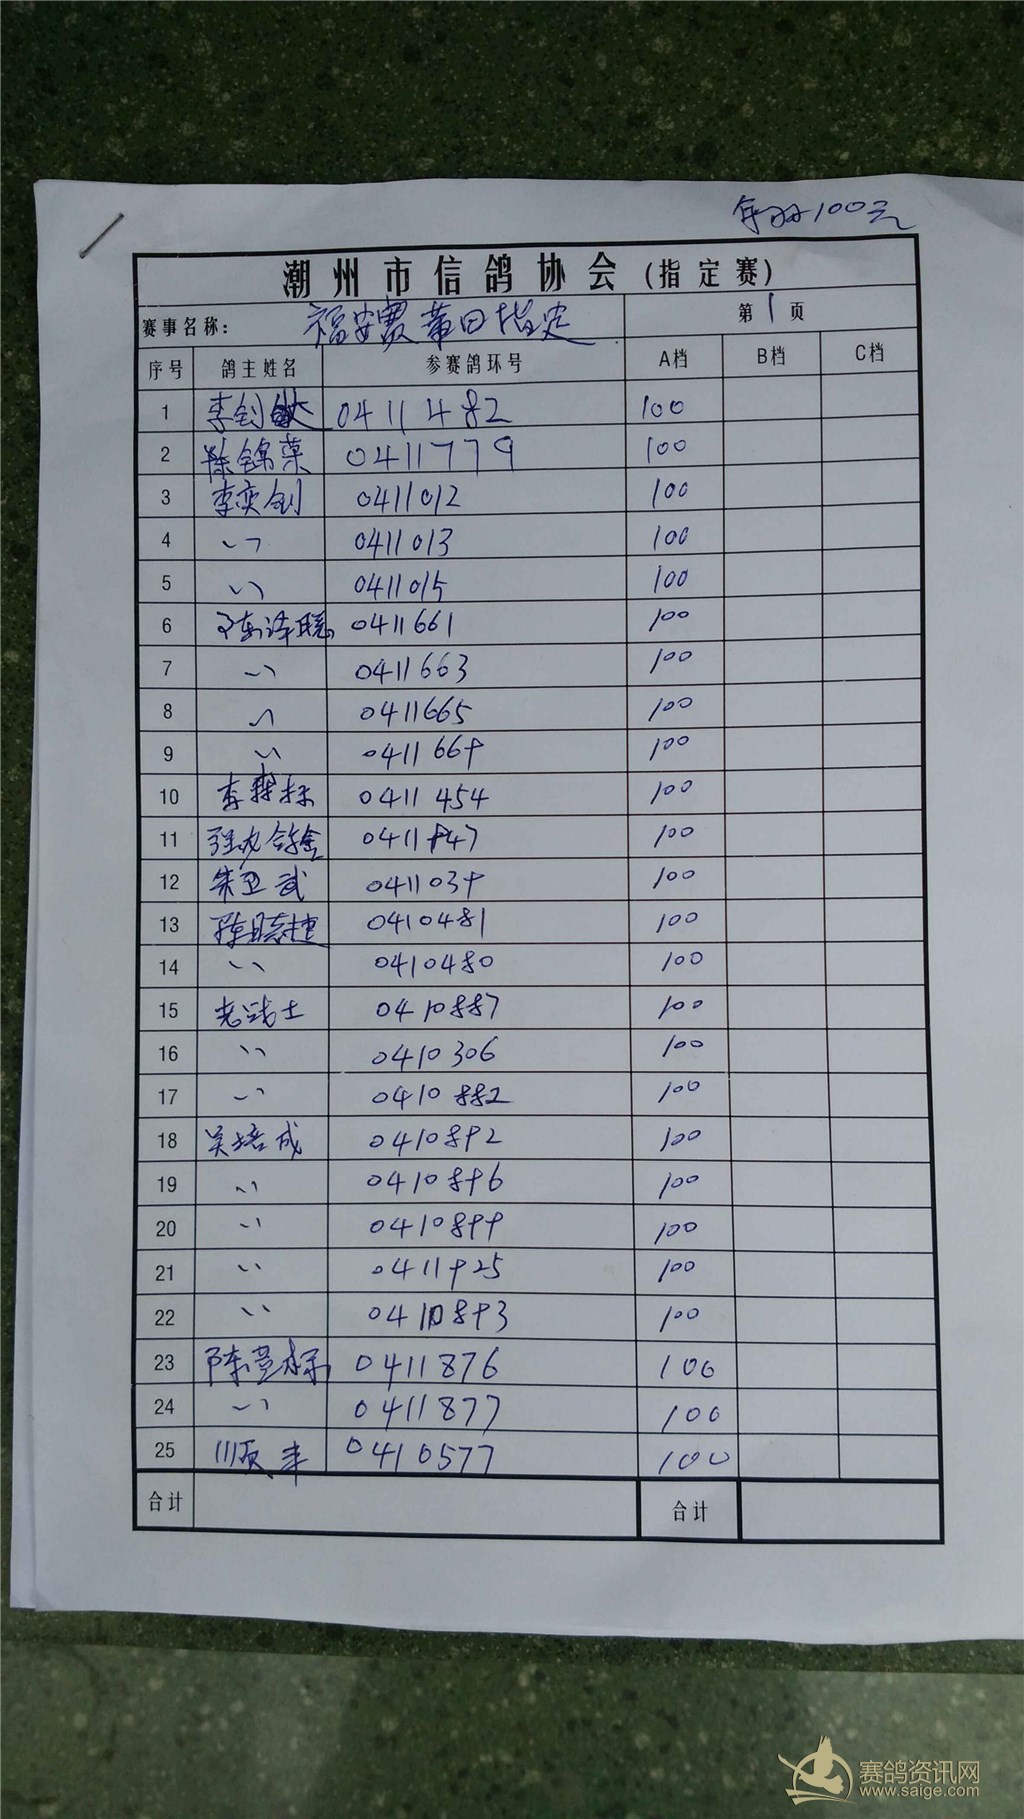 100元
潮州市信鸽协会(指定赛)
赛事名称: 福安赛当日指定 第1页
序号 鸽主姓名 参赛鸽环号 A档 B档 C档
1 李创 0411482 100
2 陈锦荣 0411779 100
3 李奕创 0411012 100
4 〃 0411013 100
5 〃 0411015 100
6 陈泽聪 0411661 100
7 〃 0411663 100
8 〃 0411665 100
9 〃 0411669 100
10 李 标 0411454 100
11 强力鸽舍 0411947 100
12 朱卫武 0411039 100
13 陈晓捷 0410481 100
14 〃 0410480 100
15 老战士 0410887 100
16 〃 0410306 100
17 〃 0410882 100
18 吴培成 0410892 100
19 〃 0410896 100
20 〃 0410899 100
21 〃 0411925 100
22 〃 0410893 100
23 陈 0411876 100
24 〃 0411877 100
25 顺丰 0410577 100
合计 合计
赛鸽资讯网
www.saige.com